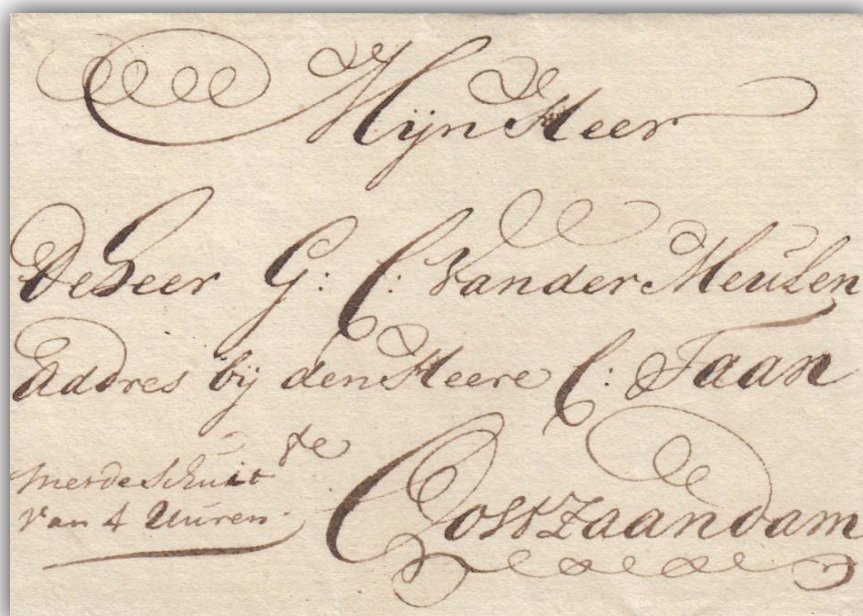 Mijn Heer
De Heer G: C: Vander Meulen
Addres bij den Heere C: Taan
met de Schuit
van 4 Uuren
te
Oostzaandam